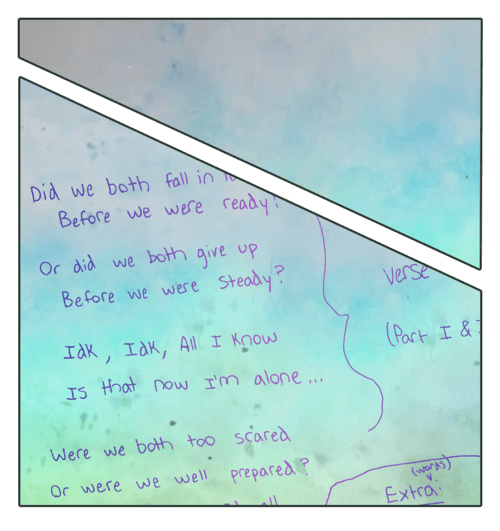 Did we both fall in
Before we were ready?
Or did we both give up
Before we were Steady?
Idk, Idk, All I Know
Is that now I'm alone...
Were we both too scared
Or were we well prepared?
all
Verse
(Part I &
(words)
Extra: